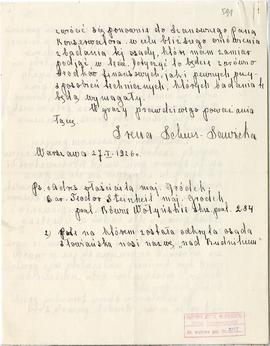 591
zwrócić się ponownie do Szanownego Pana
Konserwatora w celu bliższego omówienia
i zbadania tej osady, które mam zamiar
podjąć w lecie. Dotyczy to będzie zarówno
środków finansowych, jak i pewnych przy-
sposobień technicznych, których badania te
będą wymagały.
Wyrazy prawdziwego poważania
łączę.
Irena Scheur-Sawicka
Warszawa 27.I. 1926.
Ps. Adres właściciela maj. Gródek,
Bar. Teodor Steinheil maj. Gródek
pocz. Równe Wołyńskie skrz. pocz. 284
2) Pole na którém została odkryta osada
słowiańska nosi nazwę "nad Rudnikiem"